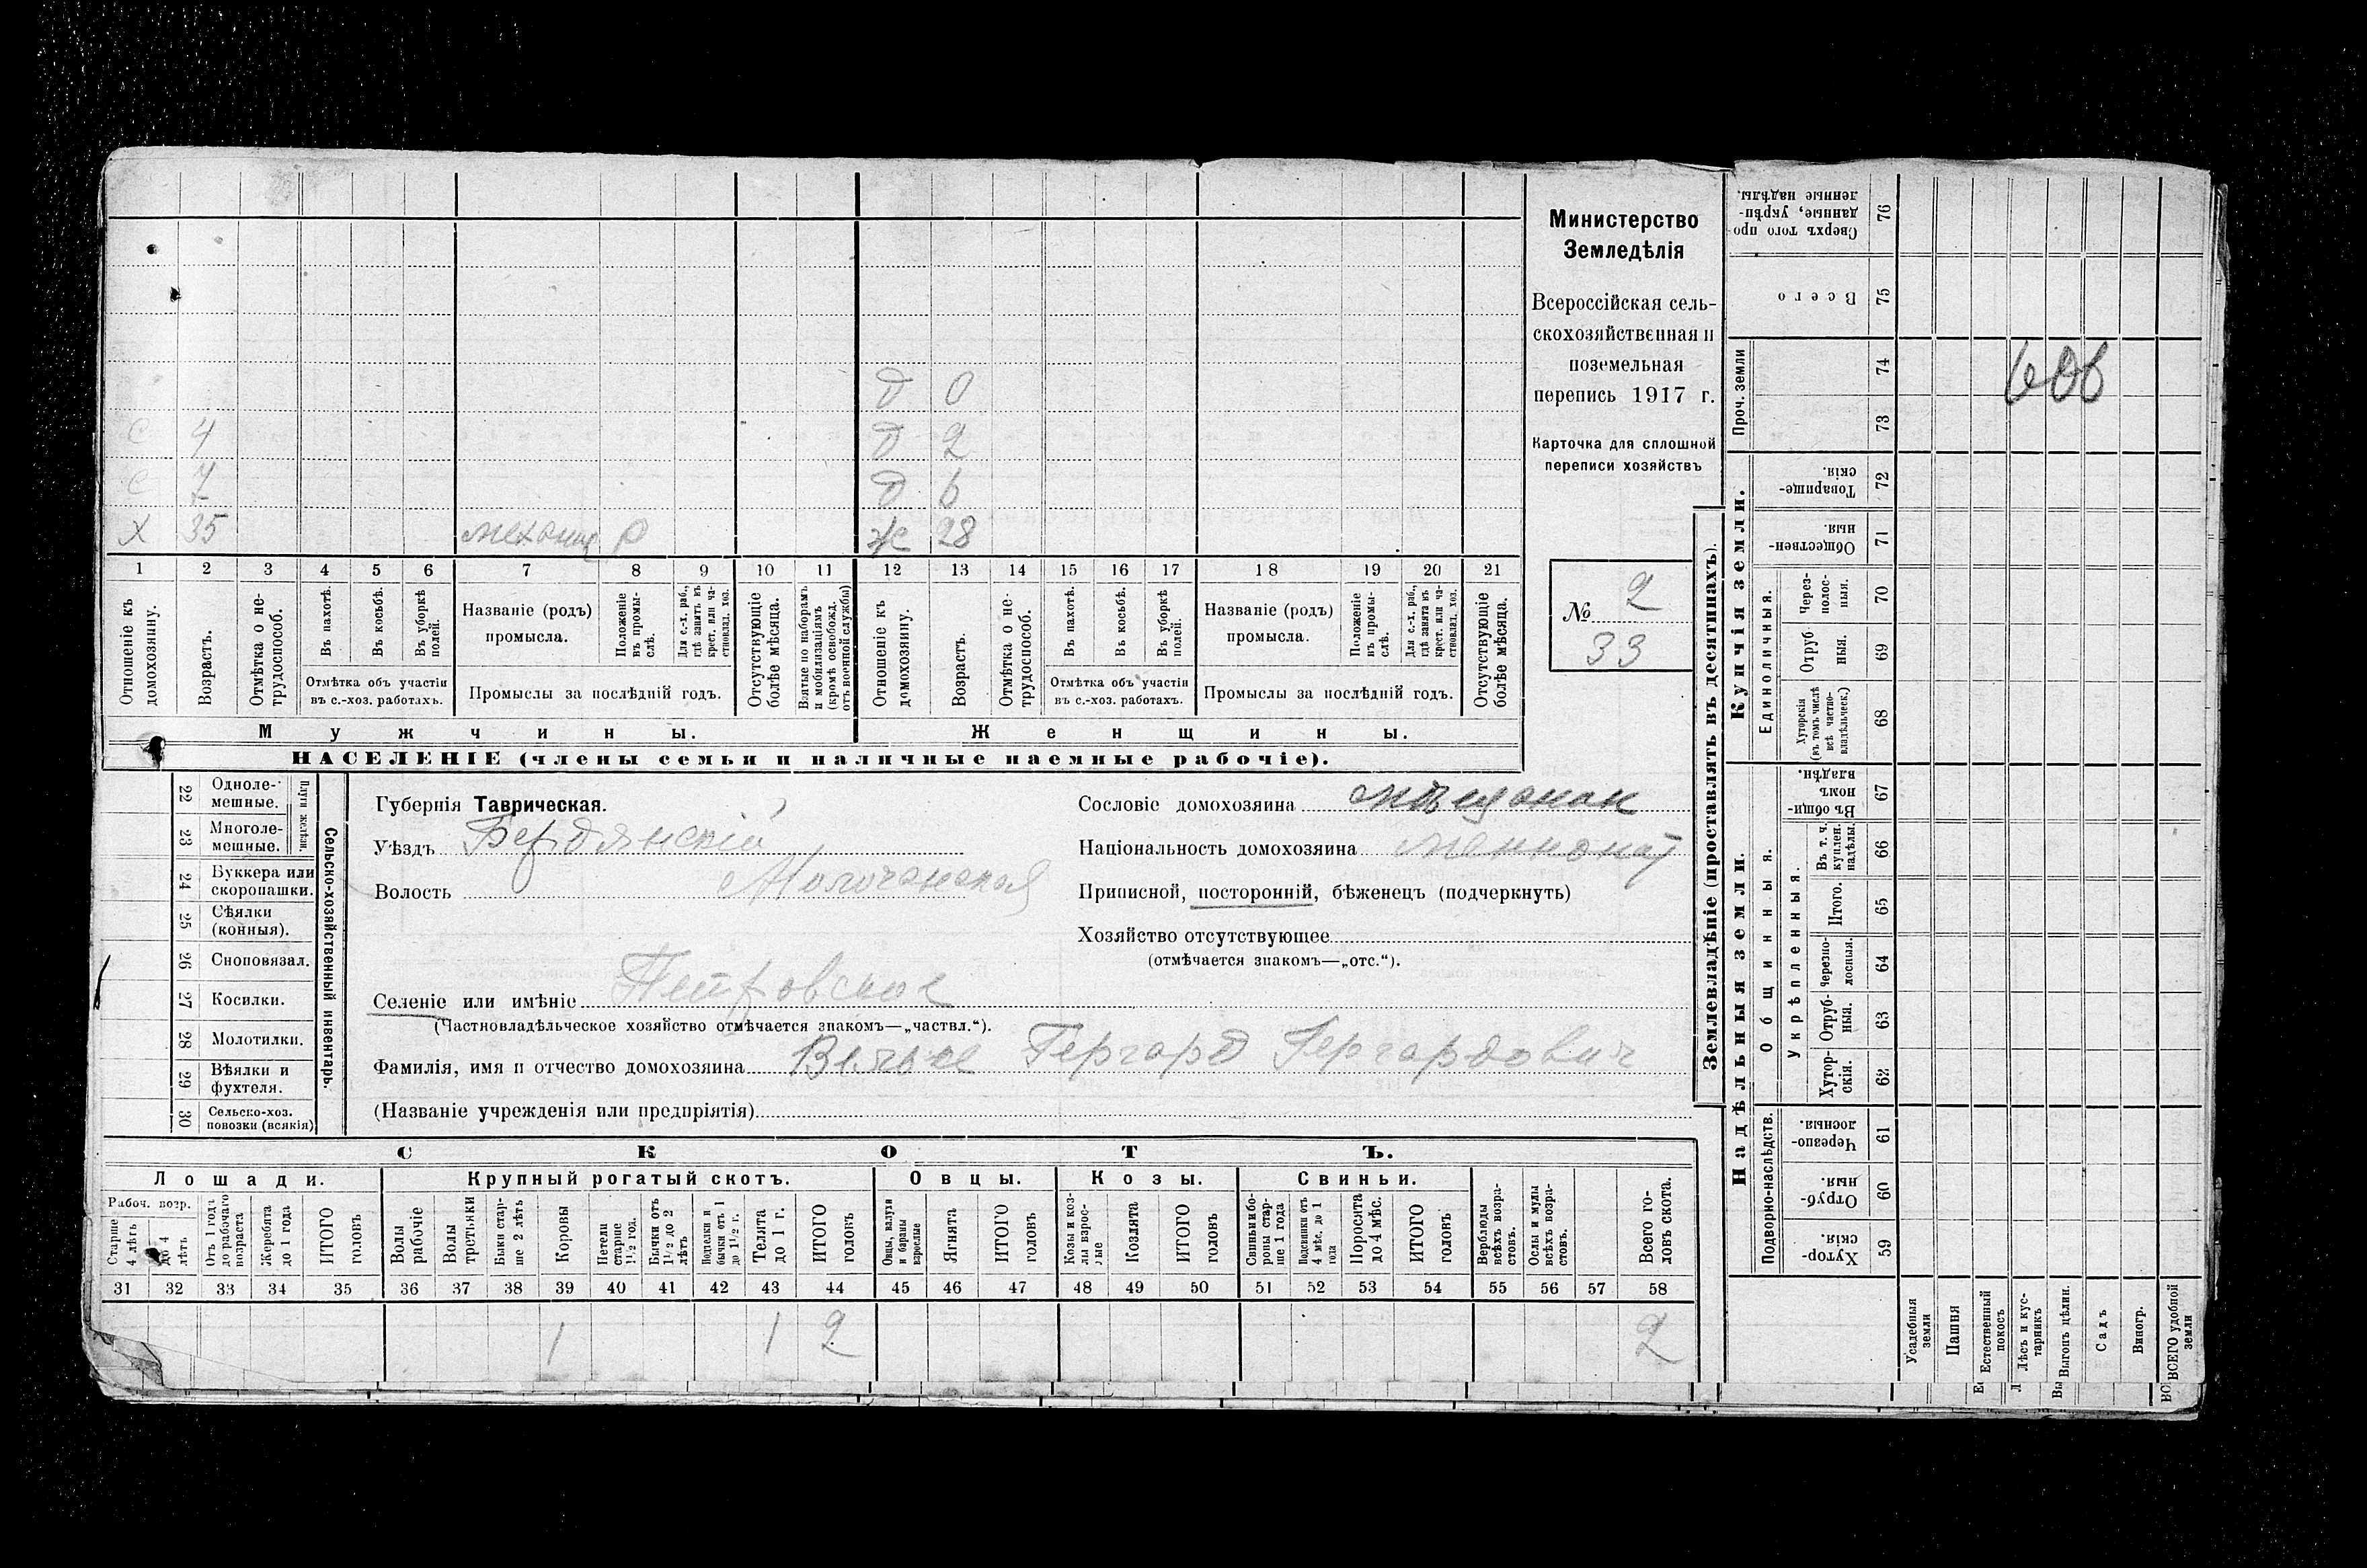 Министерство
Земледѣлія
Всероссійская сель-
скохозяйственная и
поземельная
перепись 1917 г.
Карточка для сплошной
переписи хозяйствъ
№ 2
33
Д 0
С 4 Д 2
С 7 Д 6
Х 35 механик Р Ж 28
1 2 3 4 5 6 7 8 9 10 11 12 13 14 15 16 17 18 19 20 21
Отношеніе къ домохозяину.
Возрастъ.
Отмѣтка о не-трудоспособ.
Въ пахотѣ.
Въ косьбѣ.
Въ уборкѣ полей.
Отмѣтка объ участіи въ с.-хоз. работахъ.
Названіе (родъ) промысла.
Положеніе въ промы-слѣ.
Для с.-х. раб., гдѣ занятъ въ крест. или ча-стновлад. хоз.
Промыслы за послѣдній годъ.
Отсутствующіе болѣе мѣсяца.
Взятые по наборамъ и мобилизаціямъ (кромѣ освобожд. отъ военной службы)
Отношеніе къ домохозяину.
Возрастъ.
Отмѣтка о не-трудоспособ.
Въ пахотѣ.
Въ косьбѣ.
Въ уборкѣ полей.
Отмѣтка объ участіи въ с.-хоз. работахъ.
Названіе (родъ) промысла.
Положеніе въ промы-слѣ.
Для с.-х. раб., гдѣ занята въ крест. или ча-стновлад. хоз.
Промыслы за послѣдній годъ.
Отсутствующіе болѣе мѣсяца.
Мужчины. Женщины.
НАСЕЛЕНІЕ (члены семьи и наличные наемные рабочіе).
Губернія Таврическая.
Уѣздъ Бердянскій
Волость Молочанская
Селеніе или имѣніе Петровское
(Частновладѣльческое хозяйство отмѣчается знакомъ—„частвл.“).
Фамилія, имя и отчество домохозяина Гергард Гергардович
(Названіе учрежденія или предпріятія)
Сословіе домохозяина мѣщанин
Національность домохозяина меннонит
Приписной, посторонній, бѣженецъ (подчеркнуть)
Хозяйство отсутствующее
(отмѣчается знакомъ—„отс.“).
Сельско-хозяйственный инвентарь.
Плуги желѣзн.
22 Одноле-мешные.
23 Многоле-мешные.
24 Буккера или скоропашки.
25 Сѣялки (конныя).
26 Сноповязал.
27 Косилки.
28 Молотилки.
29 Вѣялки и фухтеля.
30 Сельско-хоз. повозки (всякія)
СКОТЪ.
Лошади. Крупный рогатый скотъ. Овцы. Козы. Свиньи.
Рабоч. возр.
Старше 4 лѣтъ
до 4 лѣтъ
Отъ 1 года до рабочаго возраста
Жеребята до 1 года
ИТОГО головъ
Волы рабочіе
Волы третьяки
Быки стар-ше 2 лѣтъ
Коровы
Нетели старше 1½ год.
Бычки отъ 1½ до 2 лѣтъ
Подтелки и бычки отъ 1 до 1½ г.
Телята до 1 г.
ИТОГО головъ
Овцы, валухи и бараны взрослые
Ягнята
ИТОГО головъ
Козы и коз-лы взрос-лые
Козлята
ИТОГО головъ
Свиньи и бо-ровы стар-ше 1 года
Подсвинки отъ 4 мѣс. до 1 года
Поросята до 4 мѣс.
ИТОГО головъ
Верблюды всѣхъ возра-стовъ.
Ослы и мулы всѣхъ возра-стовъ.
Всего го-ловъ скота.
31 32 33 34 35 36 37 38 39 40 41 42 43 44 45 46 47 48 49 50 51 52 53 54 55 56 57 58
1 1 2 2
Землевладѣніе (проставлять въ десятинахъ).
Надѣльныя земли. Купчія земли. Проч. земли
Подворно-наслѣдств.
Общинныя.
Укрѣпленныя.
Единоличныя.
Сверхъ того про-данные, укрѣп-ленные надѣлы. 76
Всего 75
74
73
Товарище-скія. 72
Обществен-ныя. 71
Через-полос-ныя. 70
Отруб-ныя. 69
Хуторскія (въ томъ числѣ всѣ частно-владѣльческ.) 68
Въ общин-номъ владѣн. 67
Въ т. ч. куплен. надѣлы. 66
Итого. 65
Черезпо-лосныя. 64
Отруб-ныя. 63
Хутор-скія. 62
Черезпо-лосныя. 61
Отруб-ныя. 60
Хутор-скія. 59
Усадебныя земли
Пашня
Естественный покосъ
Лѣсъ и кус-тарникъ
Выгонъ цѣлин.
Садъ
Виногр.
ВСЕГО удобной земли